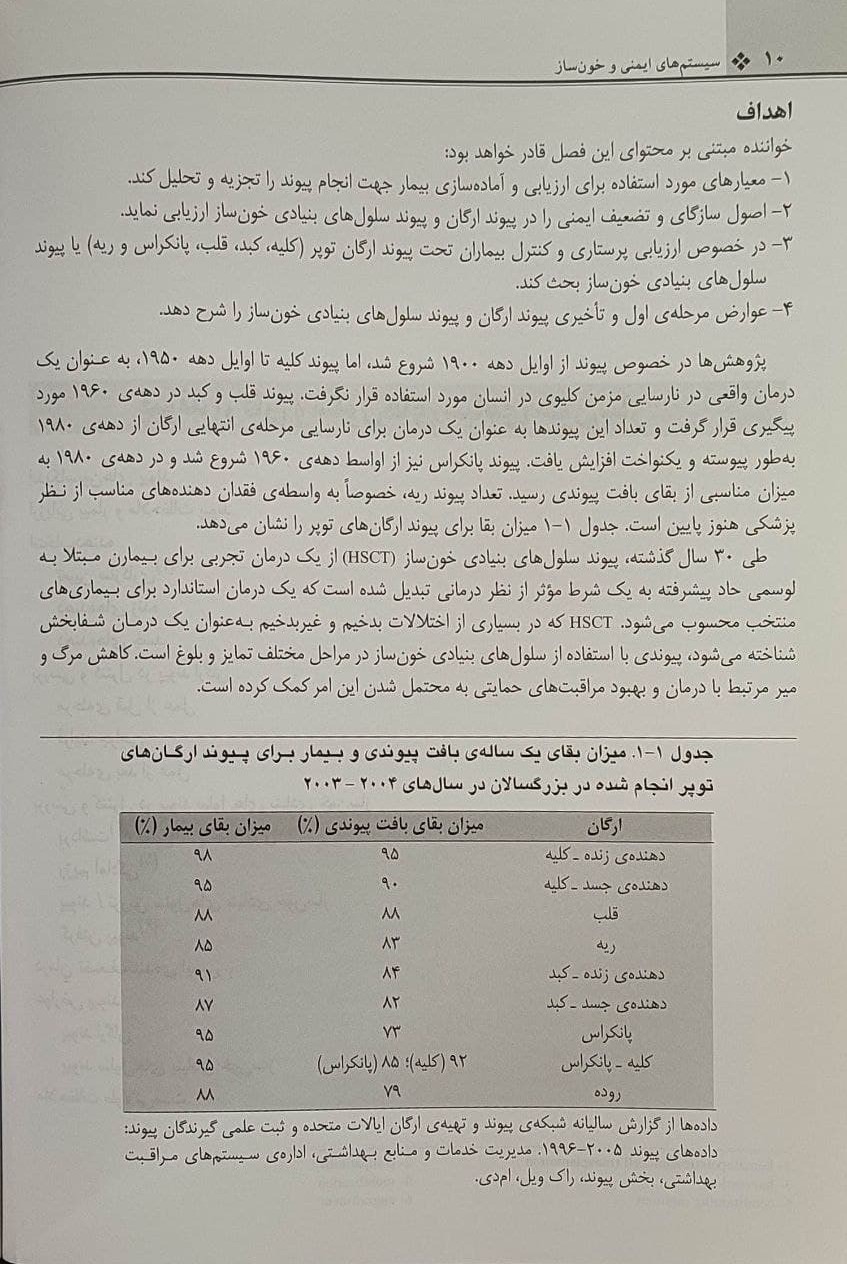 ۱۰ ❖ سیستم‌های ایمنی و خون‌ساز
اهداف
خواننده مبتنی بر محتوای این فصل قادر خواهد بود:
۱- معیارهای مورد استفاده برای ارزیابی و آماده‌سازی بیمار جهت انجام پیوند را تجزیه و تحلیل کند.
۲- اصول سازگای و تضعیف ایمنی را در پیوند ارگان و پیوند سلول‌های بنیادی خون‌ساز ارزیابی نماید.
۳- در خصوص ارزیابی پرستاری و کنترل بیماران تحت پیوند ارگان توپر (کلیه، کبد، قلب، پانکراس و ریه) یا پیوند
سلول‌های بنیادی خون‌ساز بحث کند.
۴- عوارض مرحله‌ی اول و تأخیری پیوند ارگان و پیوند سلول‌های بنیادی خون‌ساز را شرح دهد.
پژوهش‌ها در خصوص پیوند از اوایل دهه ۱۹۰۰ شروع شد، اما پیوند کلیه تا اوایل دهه ۱۹۵۰، به عنوان یک
درمان واقعی در نارسایی مزمن کلیوی در انسان مورد استفاده قرار نگرفت. پیوند قلب و کبد در دهه‌ی ۱۹۶۰ مورد
پیگیری قرار گرفت و تعداد این پیوندها به عنوان یک درمان برای نارسایی مرحله‌ی انتهایی ارگان از دهه‌ی ۱۹۸۰
به‌طور پیوسته و یکنواخت افزایش یافت. پیوند پانکراس نیز از اواسط دهه‌ی ۱۹۶۰ شروع شد و در دهه‌ی ۱۹۸۰ به
میزان مناسبی از بقای بافت پیوندی رسید. تعداد پیوند ریه، خصوصاً به واسطه‌ی فقدان دهنده‌های مناسب از نظر
پزشکی هنوز پایین است. جدول ۱-۱ میزان بقا برای پیوند ارگان‌های توپر را نشان می‌دهد.
طی ۳۰ سال گذشته، پیوند سلول‌های بنیادی خون‌ساز (HSCT) از یک درمان تجربی برای بیمارن مبتلا به
لوسمی حاد پیشرفته به یک شرط مؤثر از نظر درمانی تبدیل شده است که یک درمان استاندارد برای بیماری‌های
منتخب محسوب می‌شود. HSCT که در بسیاری از اختلالات بدخیم و غیربدخیم به‌عنوان یک درمان شفابخش
شناخته می‌شود، پیوندی با استفاده از سلول‌های بنیادی خون‌ساز در مراحل مختلف تمایز و بلوغ است. کاهش مرگ و
میر مرتبط با درمان و بهبود مراقبت‌های حمایتی به محتمل شدن این امر کمک کرده است.
جدول ۱-۱. میزان بقای یک ساله‌ی بافت پیوندی و بیمار برای پیوند ارگان‌های
توپر انجام شده در بزرگسالان در سال‌های ۲۰۰۴ - ۲۰۰۳
ارگان میزان بقای بافت پیوندی (%) میزان بقای بیمار (%)
دهنده‌ی زنده ـ کلیه ۹۵ ۹۸
دهنده‌ی جسد ـ کلیه ۹۰ ۹۵
قلب ۸۸ ۸۸
ریه ۸۳ ۸۵
دهنده‌ی زنده ـ کبد ۸۴ ۹۱
دهنده‌ی جسد ـ کبد ۸۲ ۸۷
پانکراس ۷۳ ۹۵
کلیه ـ پانکراس ۹۲ (کلیه)؛ ۸۵ (پانکراس) ۹۵
روده ۷۹ ۸۸
داده‌ها از گزارش سالیانه شبکه‌ی پیوند و تهیه‌ی ارگان ایالات متحده و ثبت علمی گیرندگان پیوند:
داده‌های پیوند ۲۰۰۵-۱۹۹۶. مدیریت خدمات و منابع بهداشتی، اداره‌ی سیستم‌های مراقبت
بهداشتی، بخش پیوند، راک ویل، ام‌دی.